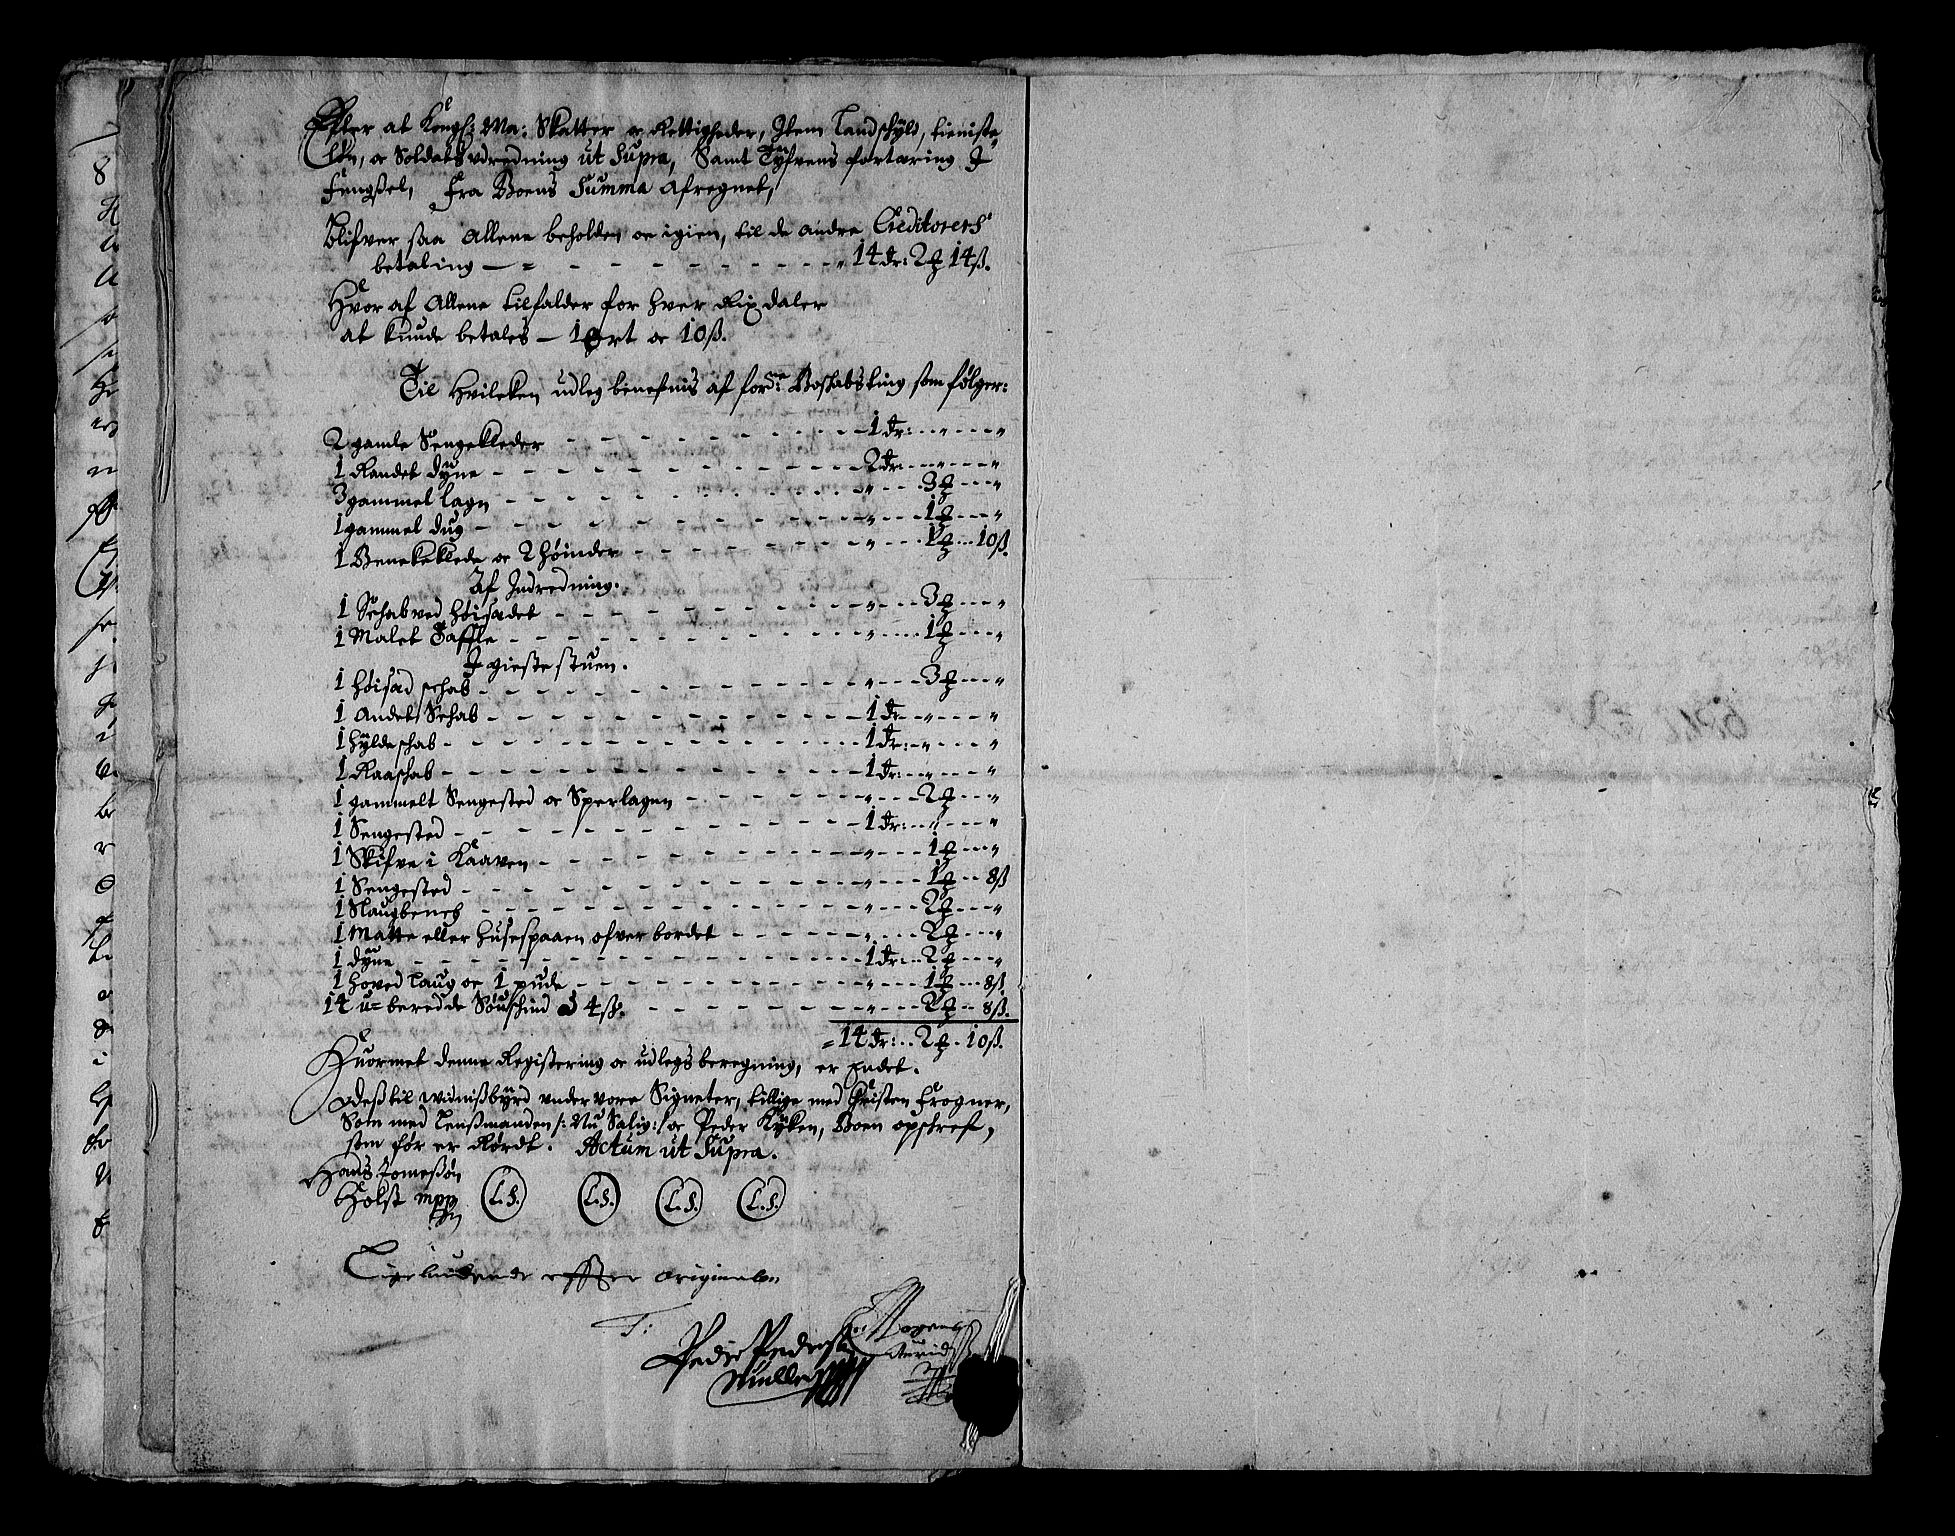 Efter at Kongl: Ma: Skatter oc Rettigheder, Item Landschyld, tieniste
løn, oc Soldats udredning ut Supra, Samt Tyfvens fortæring J
Fengßel, Fra Boens Summa afregnet,
Blifver saa allene beholden oc igien, til de andre Creditorers
betaling — 14 dr: 2 ẞ 14 ß.
Hvor af allene tilfalder for hver Rixdaler
at kunde betales — 1 ort oc 10 ß.
Til Hvilcken udleg benefnis af for:ne Boschabs ting som følger:
2 gamle Sengekleder - - - 1 dr: - „ - „
1 Randet dyne - - - 2 dr: - „ - „
3 gammel lagn - - - „ - 3 ort - „
1 gammel dug - - - „ - 1 ort - „
1 Benckeklede oc 2 høinder - - - „ - 1 ort - 10 ß.
Af Indredning.
1 Schab ved høisædet - - - „ - 3 ort - „
1 Malet Taffle - - - „ - 1 ort - „
J gieste stuen.
1 høisæd schab - - - „ - 3 ort - „
1 Andet Schab - - - 1 dr: - „ - „
1 hylde schab - - - 1 dr: - „ - „
1 Raaschab - - - 1 dr: - „ - „
1 gammelt Sengested oc Sperlagen - - - „ - 2 ort - „
1 Sengested - - - 1 dr: - „ - „
1 Skifve i Kaaven - - - „ - 1 ort - „
1 Sengested - - - „ - 1 ort - 8 ß
1 Slaugbench - - - „ - 2 ort - „
1 Matte eller husespaaen ofver bordet - - - „ - 2 ort - „
1 dyne - - - 1 dr: - 2 ort - „
1 hoved laug oc 1 pude - - - „ - 1 ort - 8 ß.
14 u-beredde Søuschind à 4 ß. - - - „ - 2 ort - 8 ß.
= 14 dr: - 2 ort - 10 ß.
Huormet denne Registering oc udlegs beregning, er Endet.
Deß til widnißbyrd under vore Signeter, tillige med Christen Frogner,
Som med Lensmanden /: Nu Salig :/ oc Peder Kyken, Boen opskref,
som før er Rørdt. Actum ut Supra.
Hans Jonesøn
Holst mpp
(L.S.) (L.S.) (L.S.) (L.S.)
Ligeliudende effter originalen
T:
Peder Pederß
Mogens